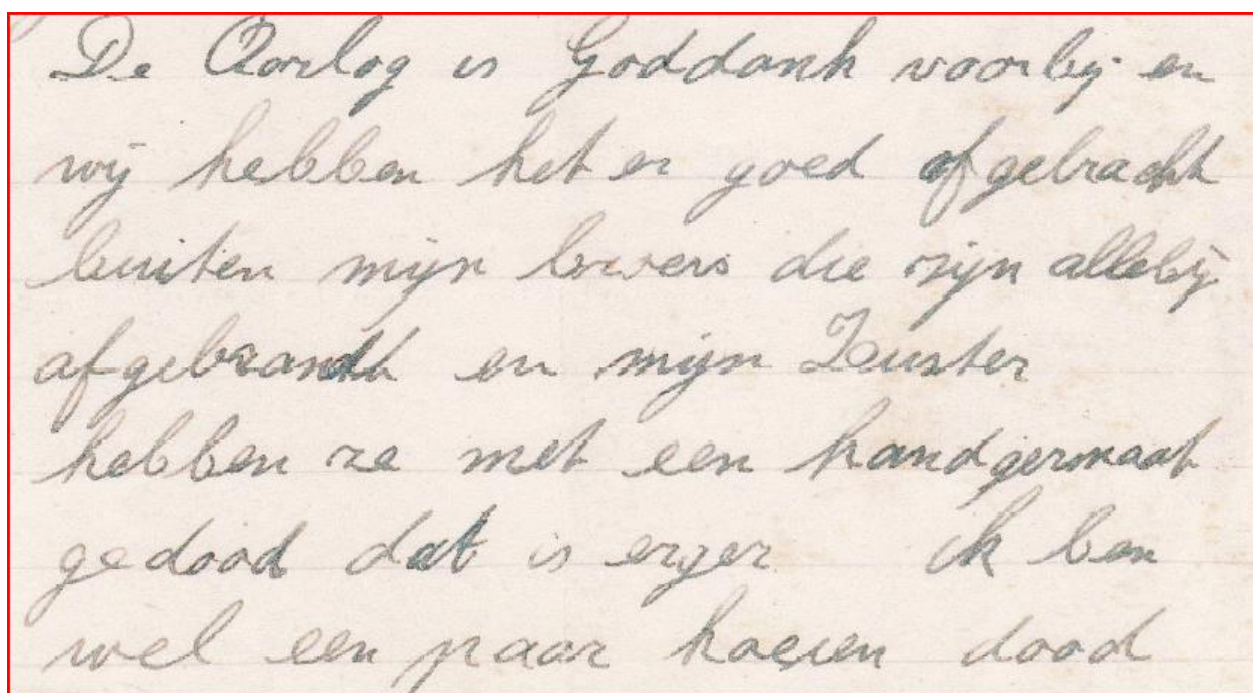 De Oorlog is Goddank voorby en
wij hebben het er goed afgebracht
buiten mijn broers die zijn allebij
afgebrandt en mijn Zuster
hebben ze met een handgernaat
gedood dat is erger ik ben
wel een paar hoeren dood